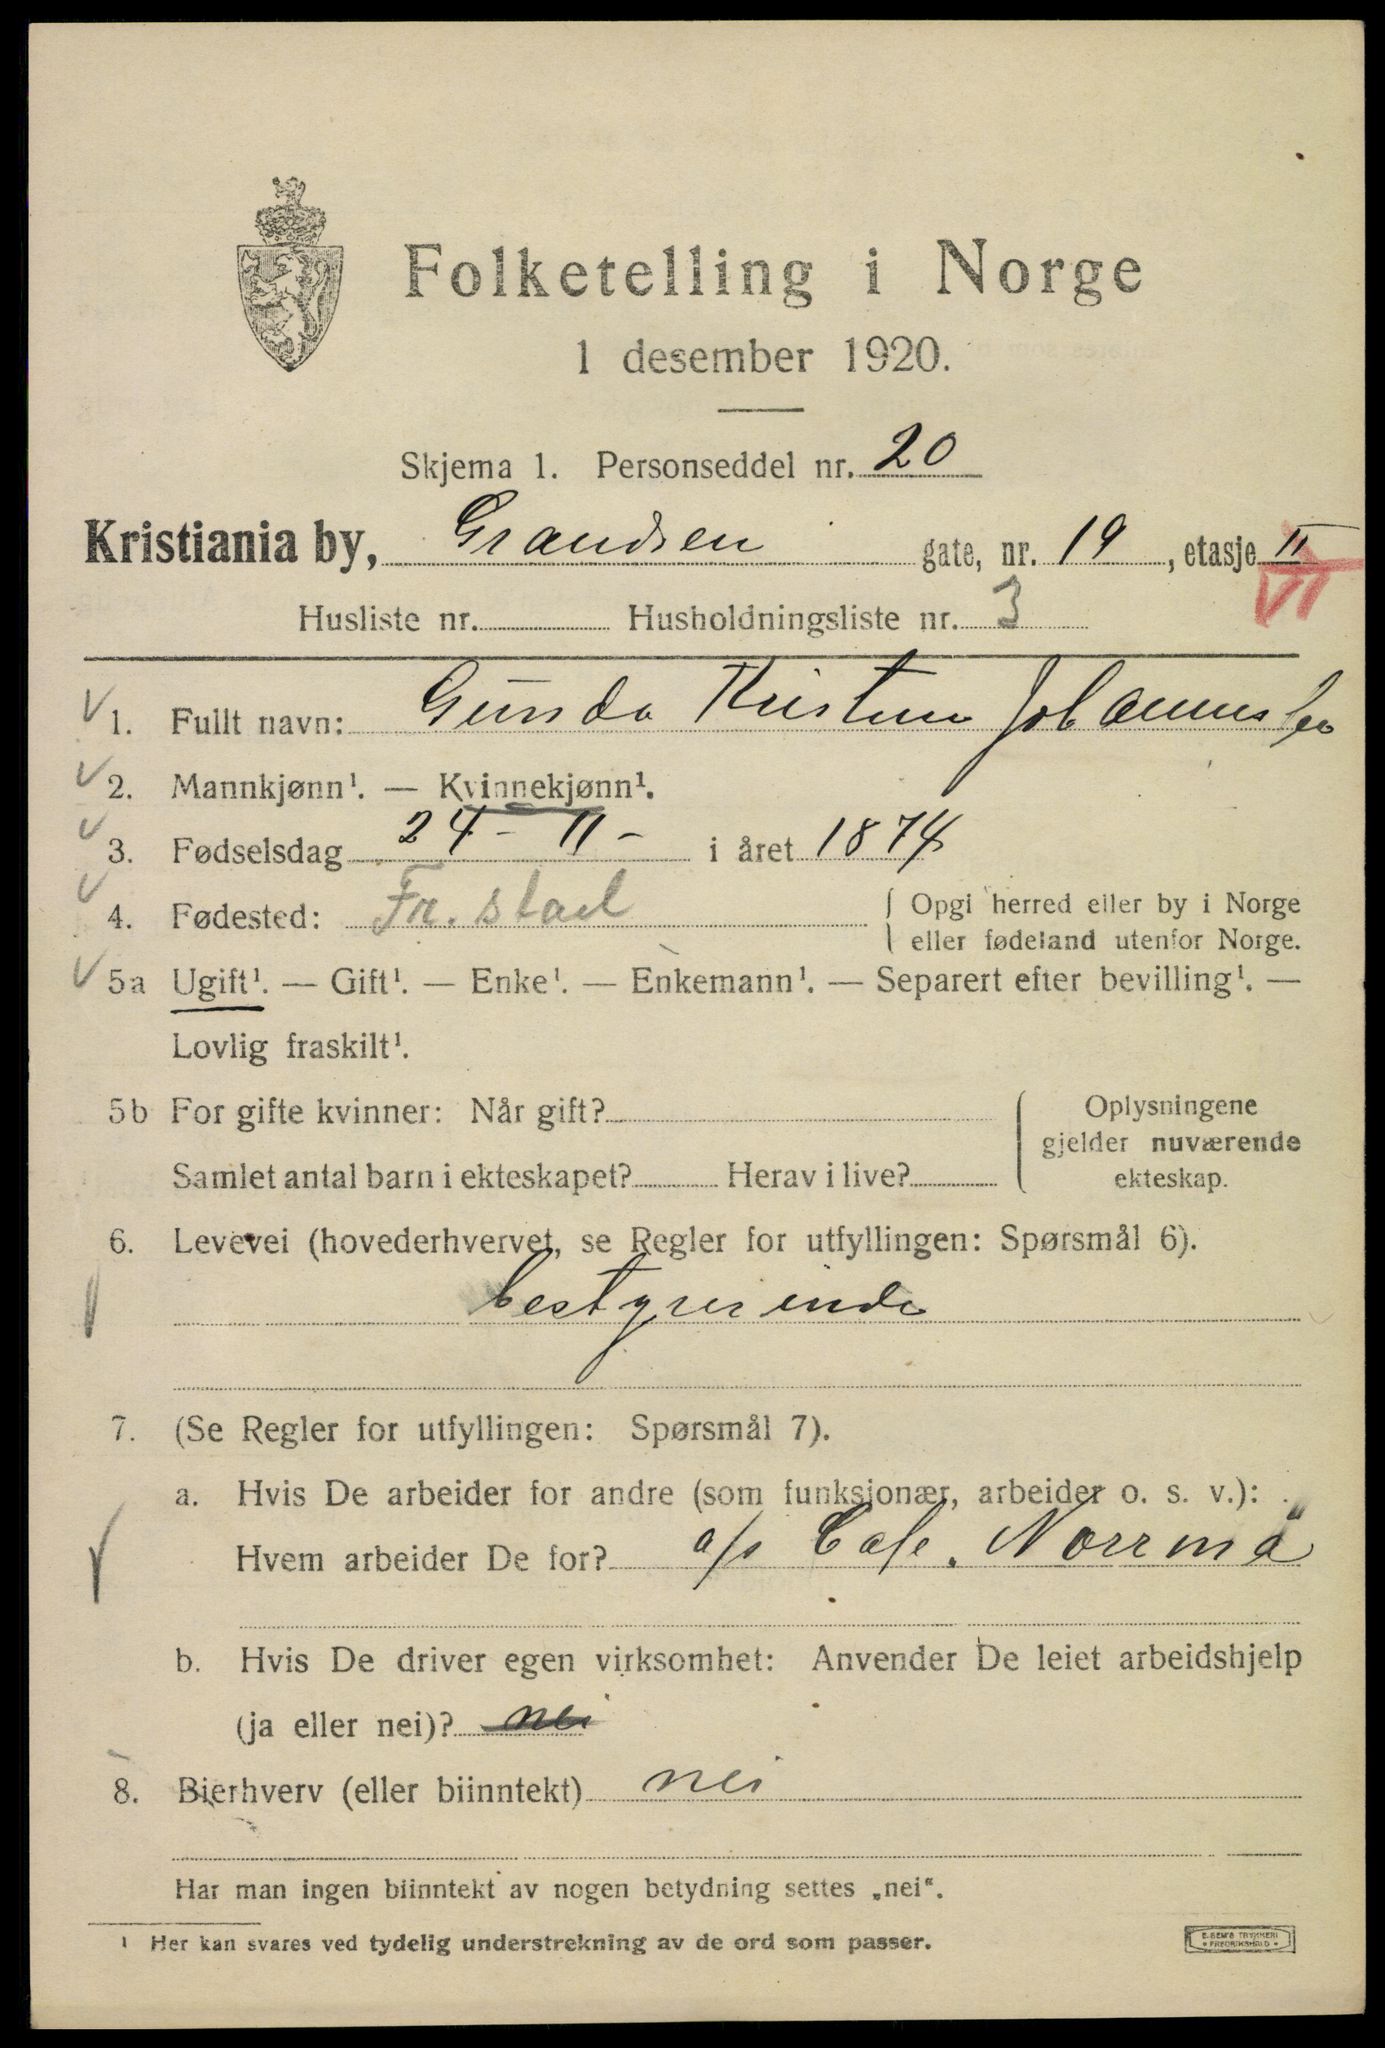 Folketelling i Norge
1 desember 1920.
Skjema 1. Personseddel nr. 20
Kristiania by, Grandsen gate, nr. 19, etasje II
VI
Husliste nr. Husholdningsliste nr. 3
1. Fullt navn: Gunda Kristine Johannesen
2. Mannkjønn¹. — Kvinnekjønn¹.
3. Fødselsdag 24 - 11 - i året 1874
4. Fødested: Fr. stad { Opgi herred eller by i Norge
eller fødeland utenfor Norge.
5a Ugift¹. — Gift¹. — Enke¹. — Enkemann¹. — Separert efter bevilling¹. —
Lovlig fraskilt¹.
5b For gifte kvinner: Når gift? Oplysningene
gjelder nuværende
Samlet antal barn i ekteskapet? Herav i live? ekteskap.
6. Levevei (hovederhvervet, se Regler for utfyllingen: Spørsmål 6).
bestyrerinde
7. (Se Regler for utfyllingen: Spørsmål 7).
a. Hvis De arbeider for andre (som funksjonær, arbeider o. s. v.):
Hvem arbeider De for? a/s Cafe. Norrmä
b. Hvis De driver egen virksomhet: Anvender De leiet arbeidshjelp
(ja eller nei)? nei
8. Bierhverv (eller biinntekt) nei
Har man ingen biinntekt av nogen betydning settes „nei“.
¹ Her kan svares ved tydelig understrekning av de ord som passer.
E. SEM'S TRYKKERI
• FREDRIKSHALD •